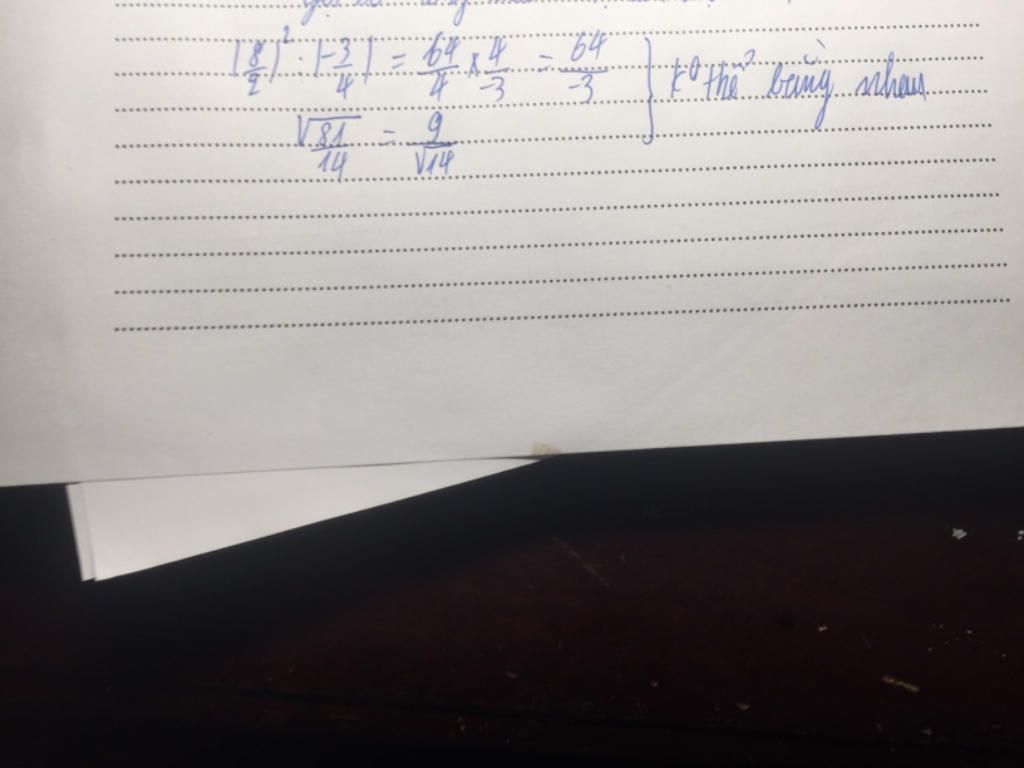 |8/2|² : |-3/4| = 64/4 × 4/-3 = 64/-3 } k⁰ thể bằng nhau
√81/14 = 9/√14